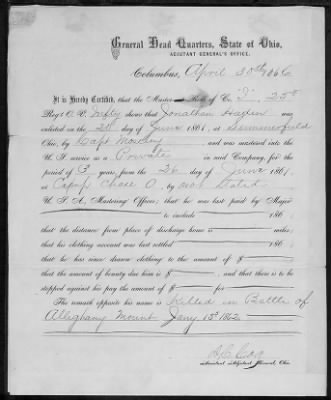 General Head Quarters, State of Ohio,
ADJUTANT GENERAL'S OFFICE,
Columbus, April 30th 1866
It is Hereby Certified, that the Muster Roll of Co. "I", 25th
Reg't O. V. Infty shows that Jonathan
enlisted in the day of June 1861, at Summerfield
Ohio, by Capt and was mustered into the
U. S. service as a Private in said Company, for the
period of 3 years, from the 26 day of June 1861,
at Camp Chase O. by not Stated
U. S. A., Mustering Officer; that he was last paid by Major
to include 186
that the distance from place of discharge home is miles;
that his clothing account was last settled 186
that he has since drawn clothing to the amount of $
that the amount of bounty due him is $ and that there is to be
stopped against his pay the amount of $ for
The remark opposite his name is Killed in Battle of
Alleghany Mount Jany. 13th 1862